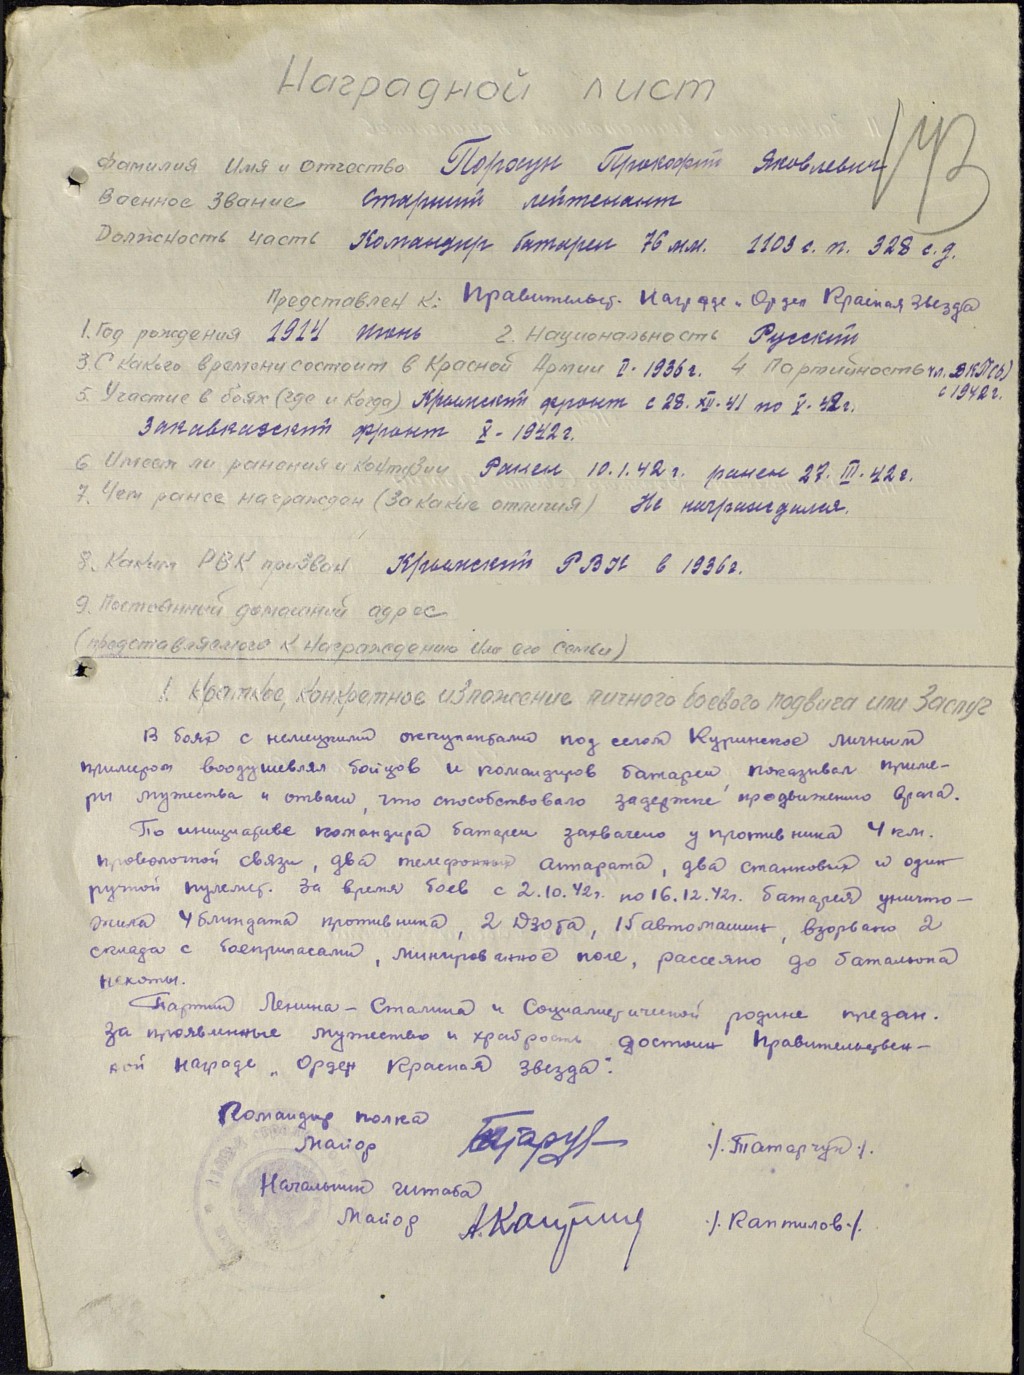 Наградной лист
Фамилия Имя и Отчество Порсун Прокофий Яковлевич
Военное звание Старший лейтенант
Должность часть Командир батареи 76 мм. 1103 с. п. 328 с. д.
Представлен к: Правительст. награде „Орден Красная Звезда
1. Год рождения 1914 июнь 2. Национальность Русский
3. С какого времени состоит в Красной Армии 1936 г. 4 Партийность чл. ВКП(б)
с 1942 г.
5. Участие в боях (где и когда) Крымский фронт с 28. XII. 41 по V. 42 г.
Закавказский фронт X - 1942 г.
6. Имеет ли ранения и контузии Ранен 10. 1. 42 г. ранен 27. III. 42 г.
7. Чем ранее награжден (За какие отличия) Не награждался.
8. Каким РВК призван Крымский РВК в 1936 г.
9. Постоянный домашний адрес
(представляемого к награждению или его семьи)
1. Краткое, конкретное изложение личного боевого подвига или Заслуг
В боях с немецкими оккупантами под селом Куринское личным
примером воодушевлял бойцов и командиров батареи, показывал приме-
ры мужества и отваги, что способствовало задержке продвижению врага.
По инициативе командира батареи захвачено у противника 4 км.
проволочной связи, два телефонных аппарата, два станковых и один
ручной пулемет. За время боев с 2.10.42г. по 16.12.42г. батарея уничто-
жила 4 блиндажа противника, 2 Дзота, 15 автомашин, взорвано 2
склада с боеприпасами, минированное поле, рассеяно до батальона
пехоты.
Партии Ленина - Сталина и Социалистической родине предан.
За проявленные мужество и храбрость достоин Правительствен-
ной награде „Орден Красная Звезда".
Командир полка
Майор ./. Татарчук ./.
Начальник штаба
Майор ./. Каптилов ./.